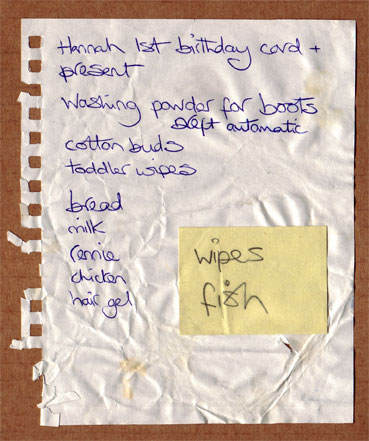 Hannah 1st birthday card +
present
Washing powder for boots
automatic
cotton buds
toddler wipes
bread
milk
rennie
chicken
hair gel
wipes
fish